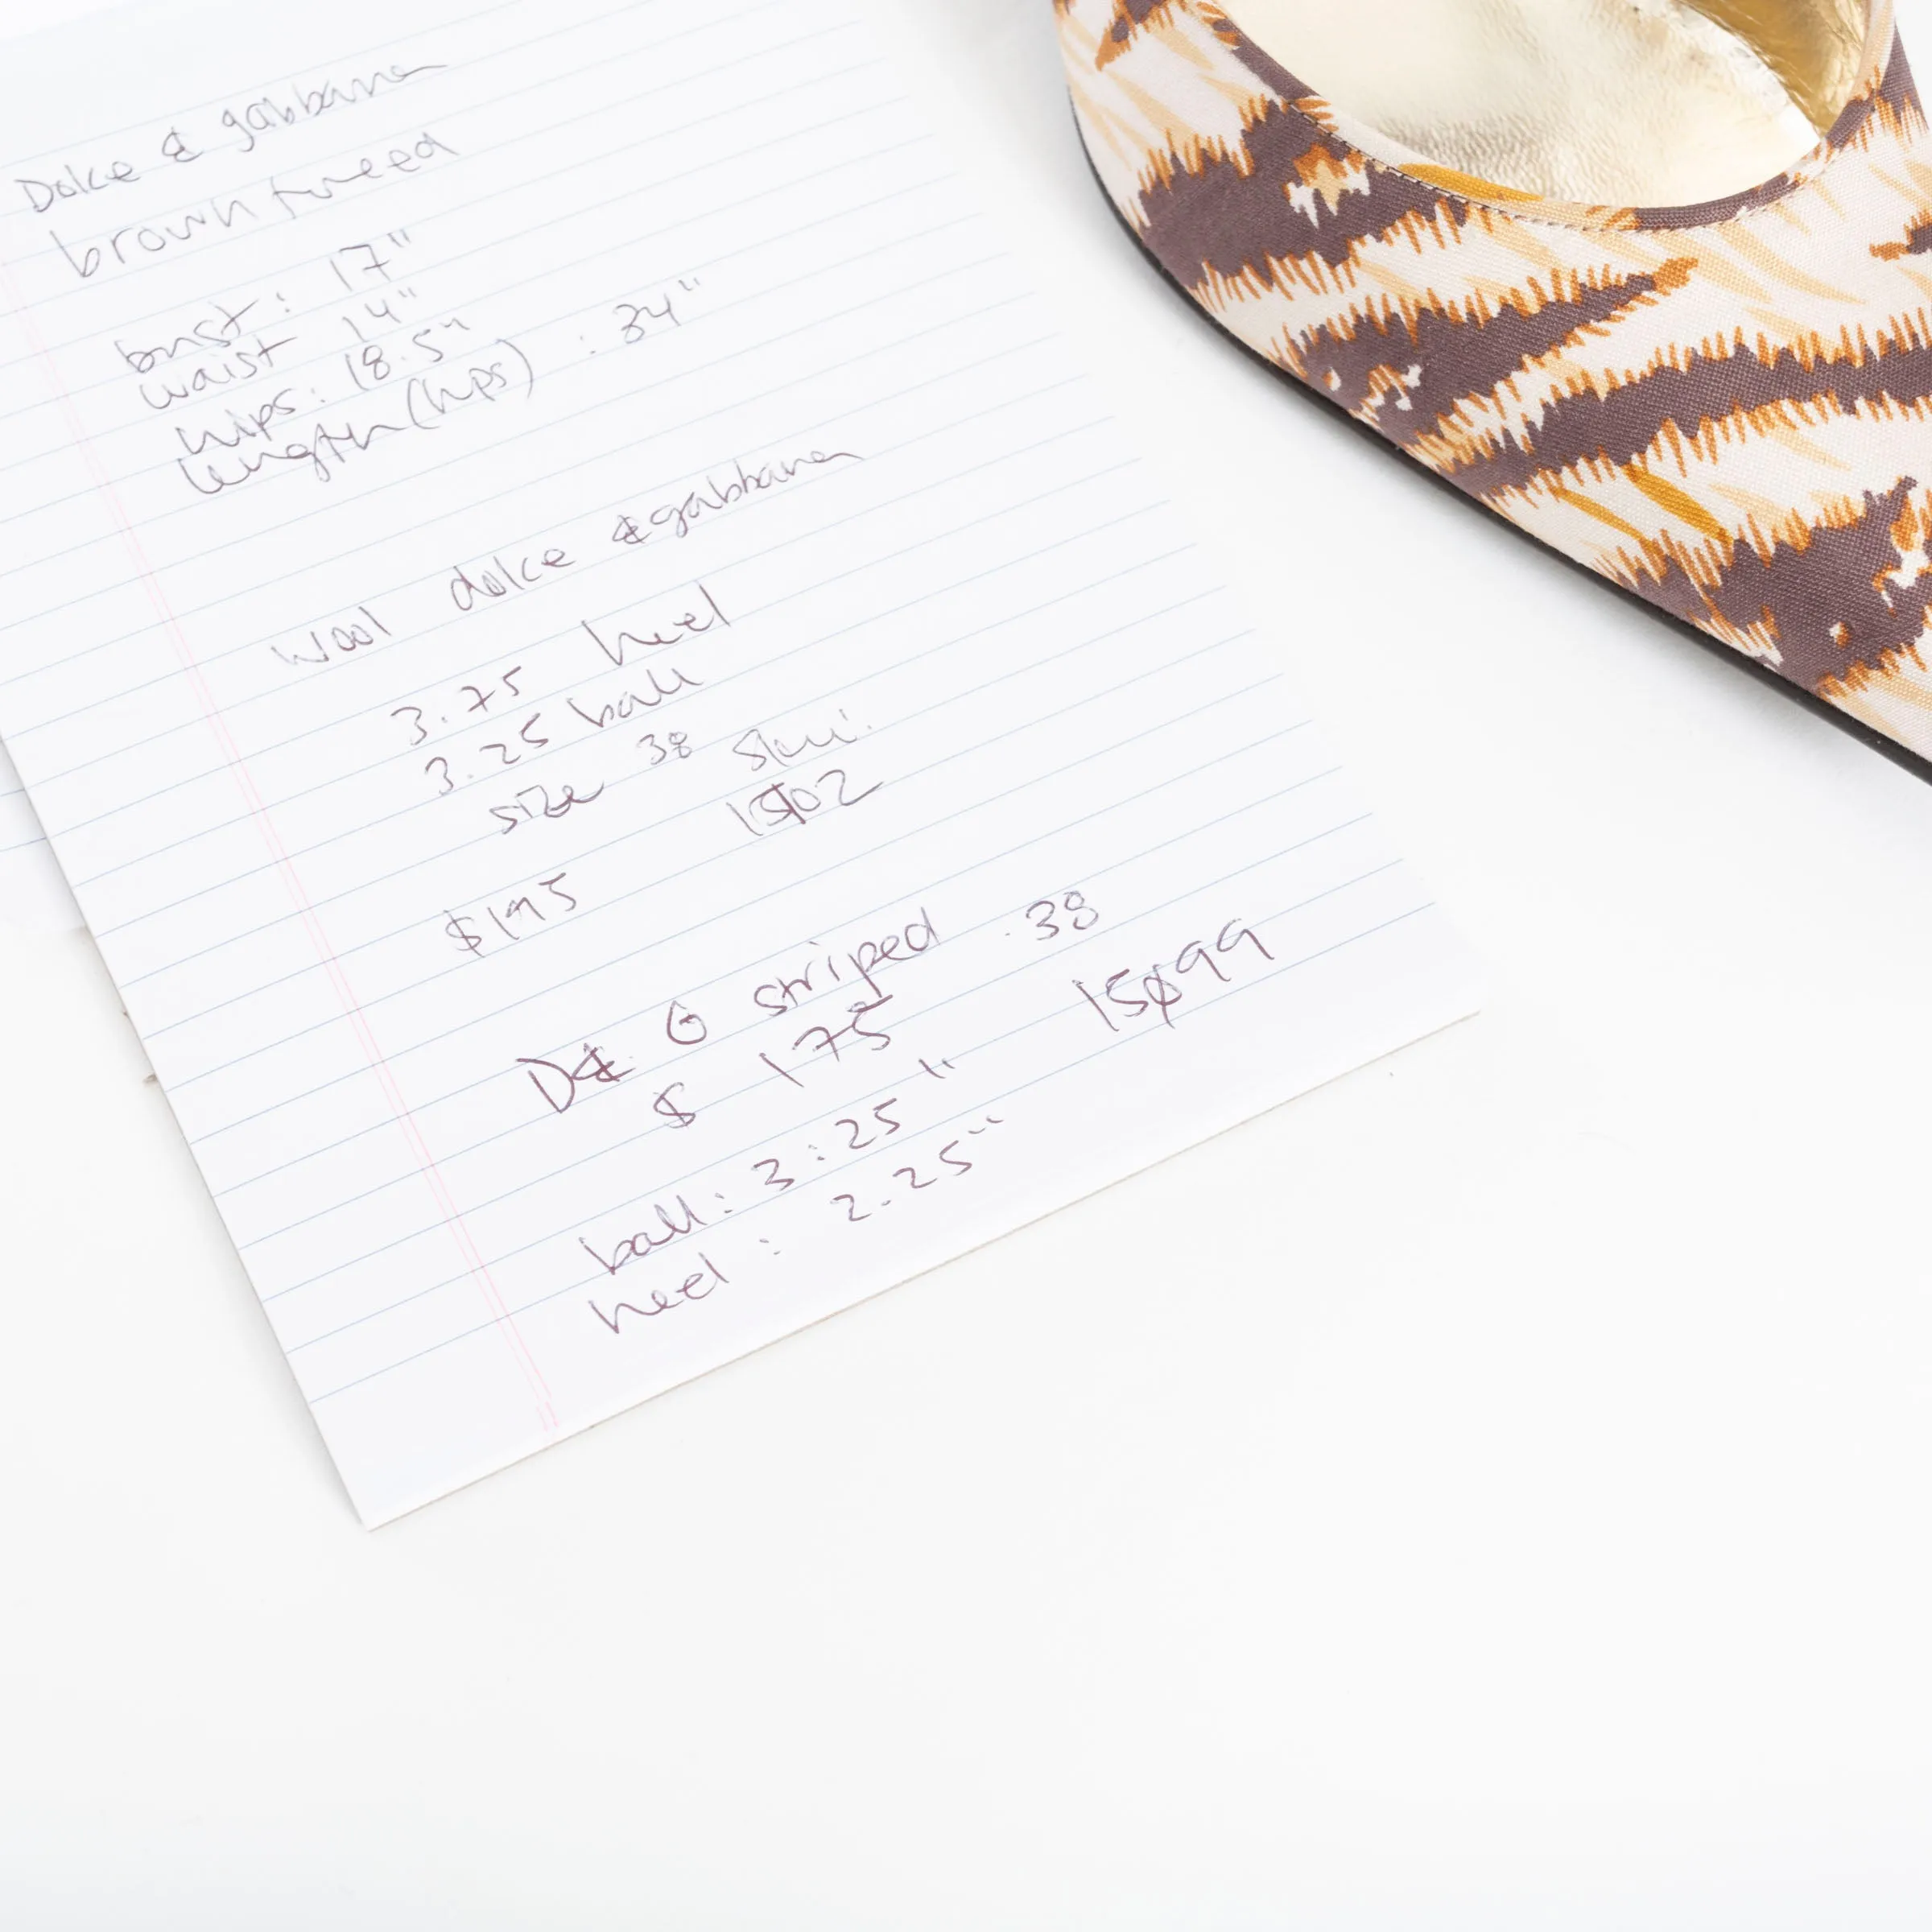 Dolce & gabbana
brown tweed
bust: 17"
waist 14"
hips: 18.5"
length (hips) : 34"
wool dolce & gabbana
3.75 heel
3.25 ball
size 38 sku:
$195 15102
D& G striped . 38
$ 175 15099
ball: 3.25"
heel: 2.25"